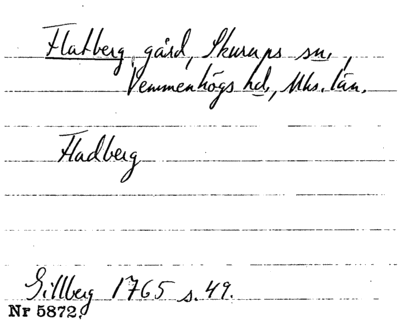 Flatberg, gård, Skurups sn.,
Vemmenhögs hd., Mhs. län.
Fladberg
Gillberg 1765 s. 49.
Nr 5872.